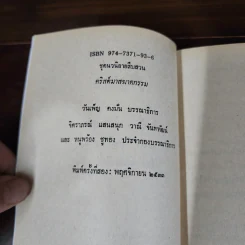 ISBN 974-7371-93-6
ชุดนวนิยายสืบสวน
คริสต์มาสฆาตกรรม
วันเพ็ญ คงมั่น บรรณาธิการ
จิตราภรณ์ แสนสนุก วาณี จันตทัฬน์
และ หนุพร้อง ชูทอง ประจำกองบรรณาธิการ
พิมพ์ครั้งที่สอง: พฤศจิกายน ๒๕๓๓